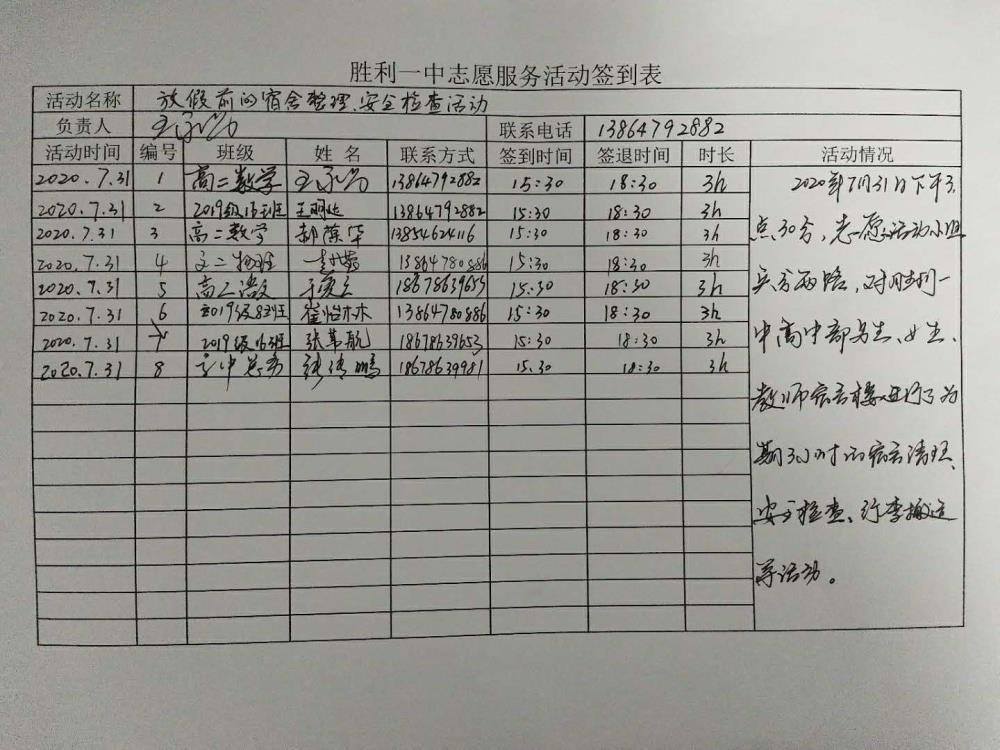 胜利一中志愿服务活动签到表
活动名称 放假前的宿舍整理、安全检查活动
负责人 联系电话 13864792882
活动时间 编号 班级 姓名 联系方式 签到时间 签退时间 时长 活动情况
2020.7.31 1 高二数学 13864792882 15:30 18:30 3h
2020.7.31 2 2019级16班 13864792882 15:30 18:30 3h
2020.7.31 3 高二数学 13854624116 15:30 18:30 3h
2020.7.31 4 13864780886 15:30 18:30 3h
2020.7.31 5 高二语文 18678639653 15:30 18:30 3h
2020.7.31 6 2019级8班 崔怡林 13864780886 15:30 18:30 3h
2020.7.31 7 2019级16班 18678639653 15:30 18:30 3h
2020.7.31 8 18678639981 15.30 18:30 3h
2020年7月31日下午3
点30分,志愿活动小组
兵分两路,对胜利一
中高中部男生、女生、
教师宿舍楼进行了为
期3小时的宿舍清理、
安全检查、行李搬运
等活动。